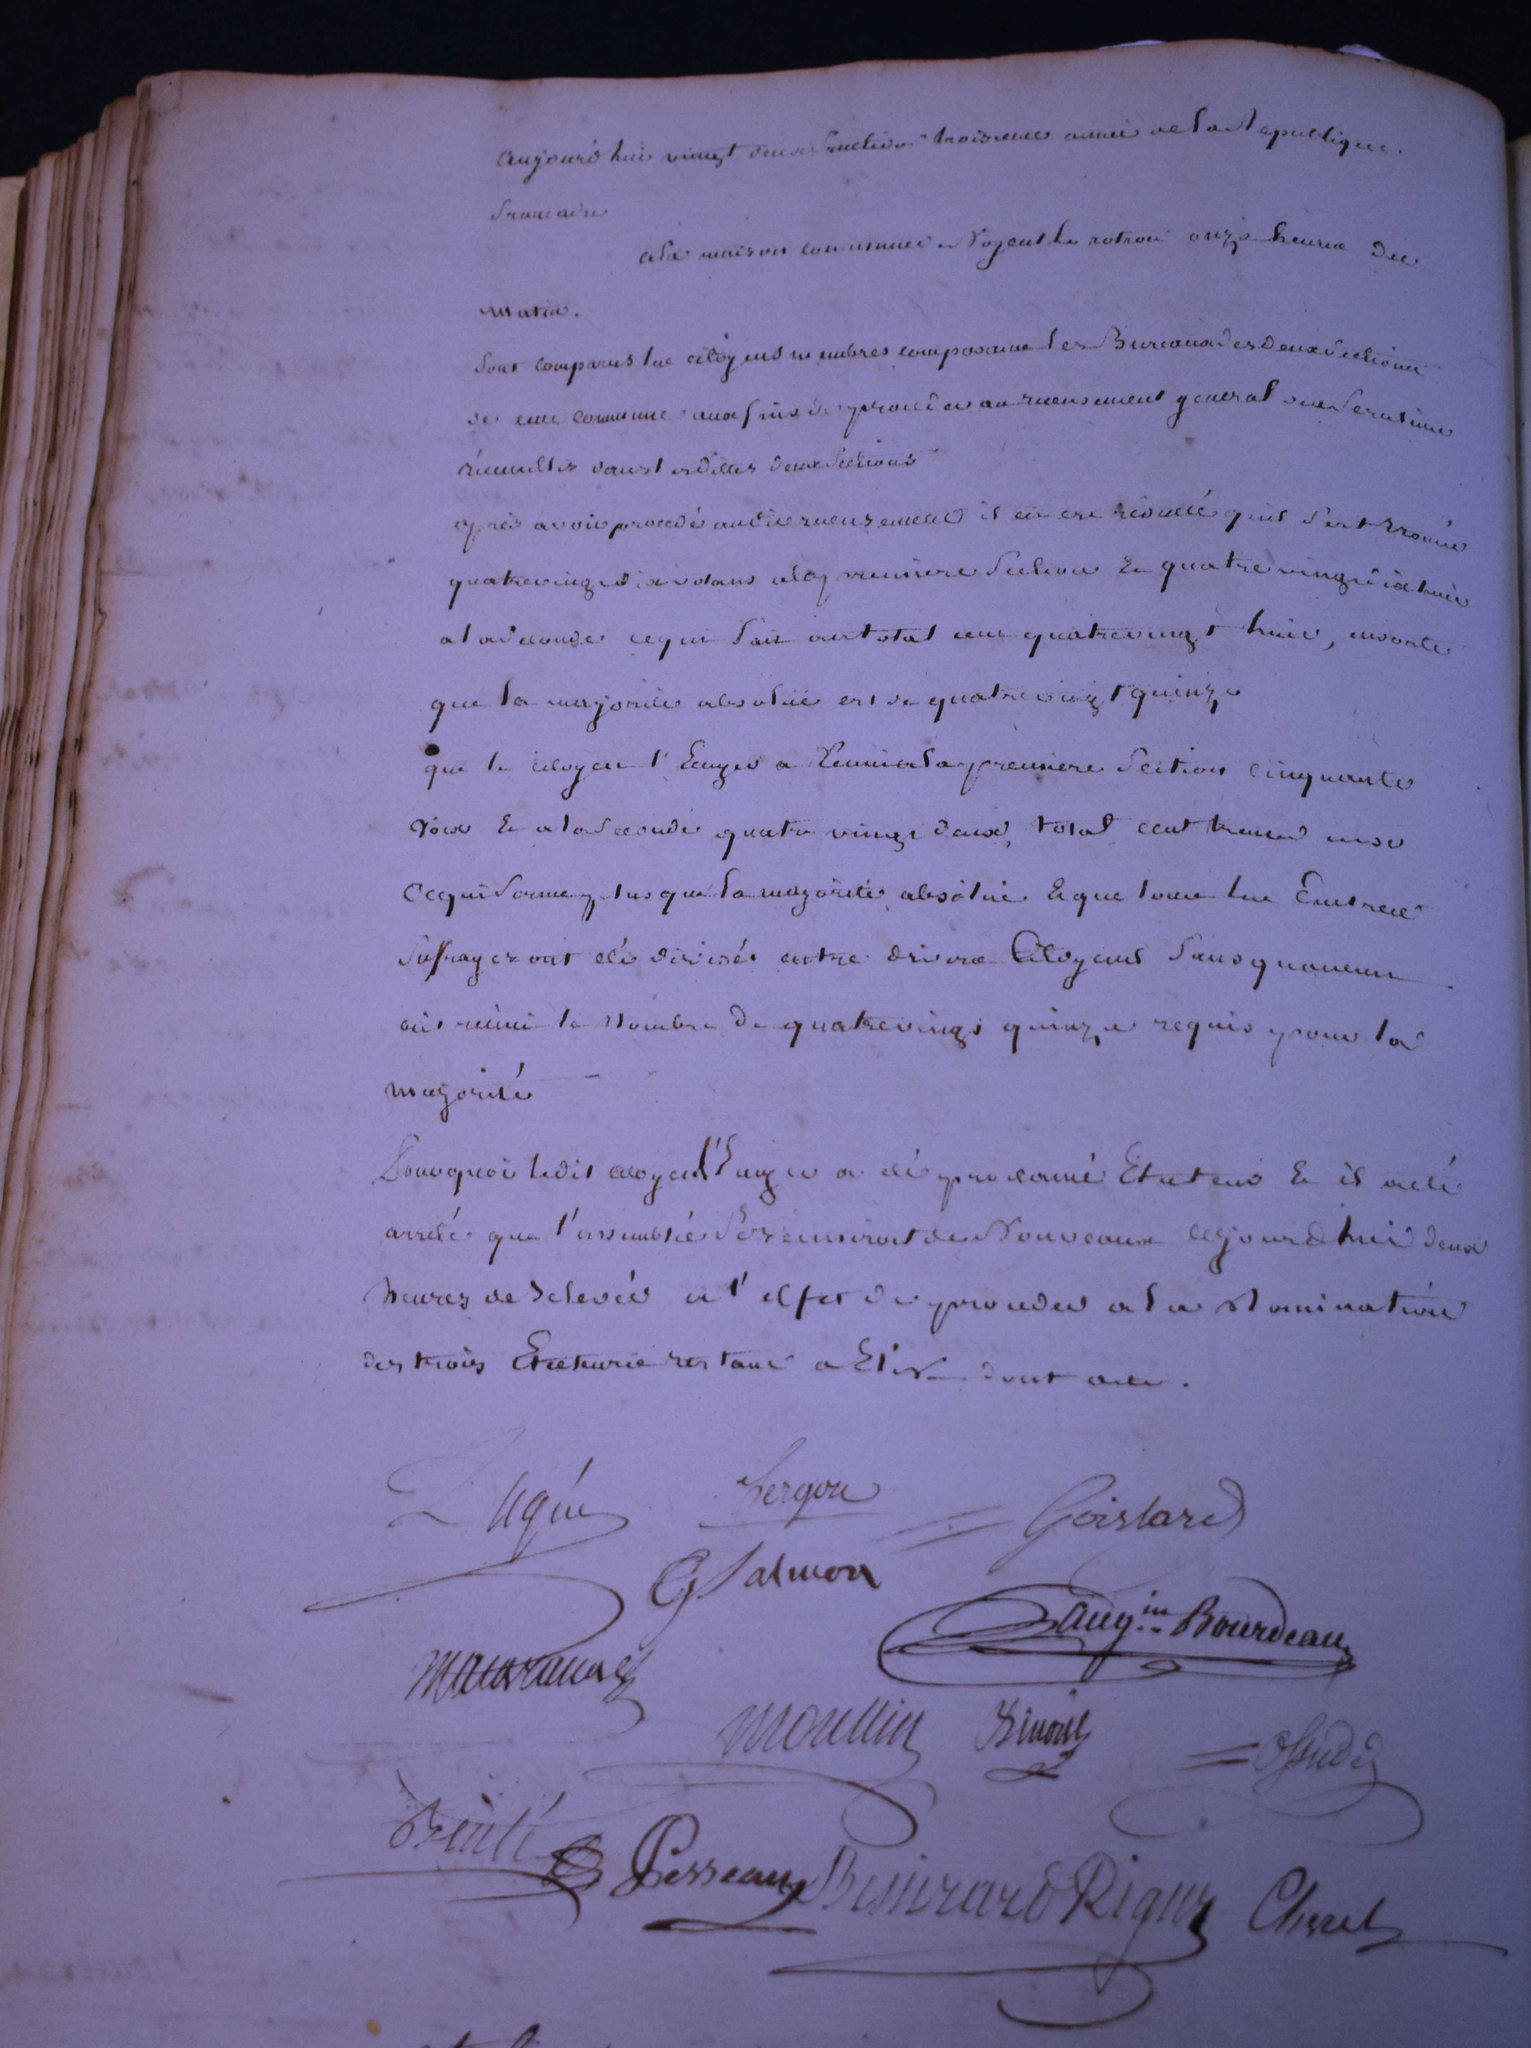 aujourd'hui vingt deux fructidor troisieme année de la Republique
francaise
a la maison commune a Nogent le rotrou onze heures du
matin.
Sont comparus les citoyens membres composant les Bureaux des deux sections
de cette commune aux fins de proceder au recensement general des scrutins
recueillis dans les dittes deux sections
après avoir procedé audit recensement il en est résulté quil s'est trouvé
quatrevingt dix votans a la premiere section et quatre vingt dix huit
a la seconde ce qui fait au total cent quatrevingt huit, ensorte
que la majorité absolüe est de quatrevingt quinze
que le citoyen l'Enger a réuni a la premiere section cinquante
voix et a la seconde quatre vingt deux, total cent trente deux
ce qui forme plus que la majorité absolüe et que tous les autres
suffrages ont été divisés entre divers citoyens sans qu'aucun
ait réuni le nombre de quatrevingt quinze requis pour la
majorité
Pourquoi ledit citoyen l'Enger a été proclamé Electeur et il a été
arrêté que l'assemblée se réuniroit de nouveau cejourdhui deux
heures de relevée a l'effet de proceder a la nomination
des trois Electeurs restant a Elire dont acte.
Dugué fergon Goislard
G Salmon
aug.in Bourdeau
moullin
Beulé Pesseau Besnard Rigus Cheret